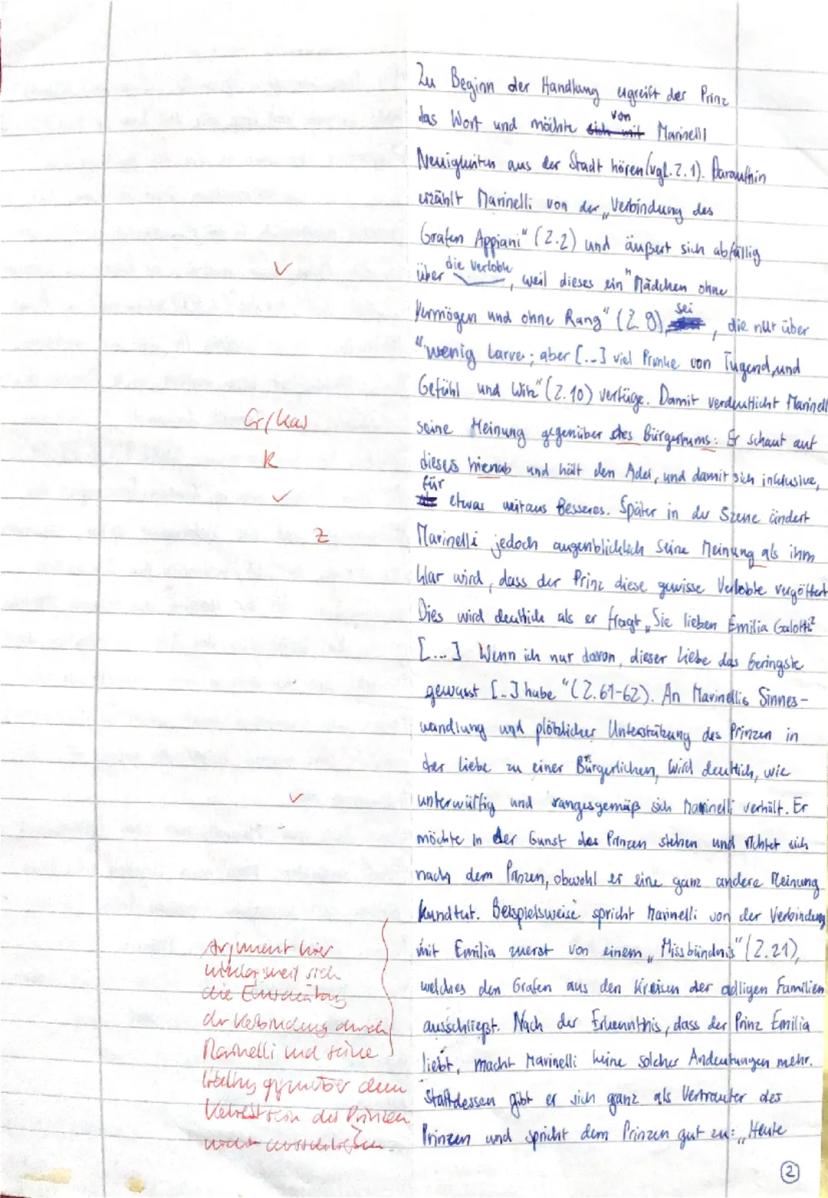 Zu Beginn der Handlung ergreift der Prinz
das Wort und möchte sich mit von Marinelli
Neuigkeiten aus der Stadt hören (vgl. Z. 1). Daraufhin
erzählt Marinelli von der „Verbindung des
Grafen Appiani" (Z.2) und äußert sich abfällig
über die Verlobte, weil dieses ein "Mädchen ohne
Vermögen und ohne Rang" (Z. 9) sei, die nur über
"wenig Larve; aber [...] viel Prunke von Tugend und
Gefühl und Witz" (Z.10) verfüge. Damit verdeutlicht Marinell
seine Meinung gegenüber des Bürgertums: Er schaut auf
Gr/Kas
dieses hienab und hält den Adel, und damit sich inklusive,
R
für etwas weitaus Besseres. Später in der Szene ändert
Marinelli jedoch augenblicklich seine Meinung als ihm
Z
klar wird, dass der Prinz diese gewisse Verlobte vergöttert
Dies wird deutlich als er fragt „Sie lieben Emilia Galotti?
[...] Wenn ich nur davon, dieser Liebe das Geringste
gewusst [...] habe "(Z.61-62). An Marinellis Sinnes-
wandlung und plötzlicher Unterstützung des Prinzen in
der Liebe zu einer Bürgerlichen, wird deutlich, wie
unterwürfig und rangesgemäß sich Marinelli verhält. Er
möchte in der Gunst des Prinzen stehen und richtet sich
nach dem Prinzen, obwohl er eine ganz andere Meinung
kundtut. Beispielsweise spricht Marinelli von der Verbindung
mit Emilia zuerst von einem „Missbündnis" (Z.21),
welches den Grafen aus den Kreisen der adligen Familien
ausschließt. Nach der Erkenntnis, dass der Prinz Emilia
liebt, macht Marinelli keine solcher Andeutungen mehr.
Stattdessen gibt er sich ganz als Vertrauter des
Prinzen und spricht dem Prinzen gut zu: „Heute
Argument hier
weil sich
die Einschätzung
der Verbindung durch
Marinelli und seine
gegenüber dem
des Prinzen
nicht ausschließen.
2